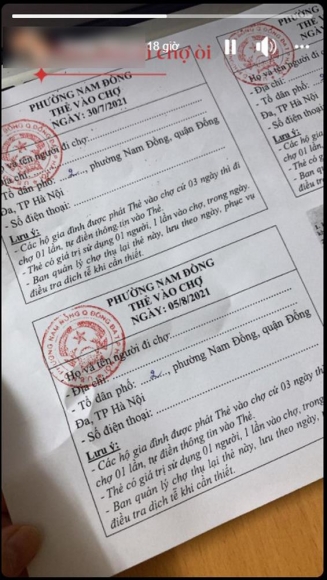 18 giờ
chợ òi
PHƯỜNG NAM ĐỒNG
THẺ VÀO CHỢ
NGÀY: 30/7/2021
Họ và tên người đi chợ:
Địa chỉ:
Tổ dân phố: 2, phường Nam Đồng, quận Đống
Đa, TP Hà Nội
- Số điện thoại:
Lưu ý:
- Các hộ gia đình được phát Thẻ vào chợ cứ 03 ngày thì đi
chợ 01 lần, tự điền thông tin vào Thẻ.
- Thẻ có giá trị sử dụng 01 người, 1 lần vào chợ, trong ngày.
- Ban quản lý chợ thu lại thẻ này, lưu theo ngày, phục vụ
điều tra dịch tễ khi cần thiết.
PHƯỜNG NAM ĐỒNG
THẺ VÀO CHỢ
NGÀY: 05/8/2021
Họ và tên người đi chợ:
- Địa chỉ:
- Tổ dân phố: 2, phường Nam Đồng, quận Đống
Đa, TP Hà Nội
- Số điện thoại:
Lưu ý:
- Các hộ gia đình được phát Thẻ vào chợ cứ 03 ngày th
chợ 01 lần, tự điền thông tin vào Thẻ.
- Thẻ có giá trị sử dụng 01 người, 1 lần vào chợ, tron
- Ban quản lý chợ thu lại thẻ này, lưu theo ngày,
điều tra dịch tễ khi cần thiết.
PHƯỜNG
THẺ
NGÀY
Họ và tên người đi
- Địa chỉ:
- Tổ dân phố:
Đa, TP Hà Nội
- Số điện thoại
Lưu ý:
- Các hộ gi
chợ 01 lần
- Thẻ có
- Ban q
điều tra